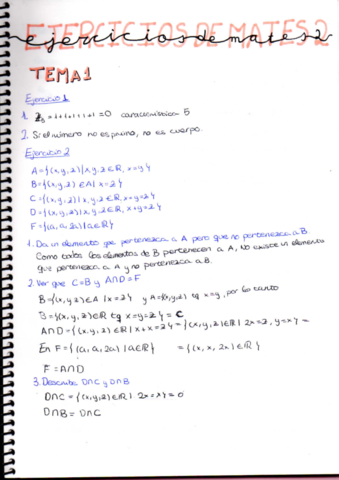 EJERCICIOS DE MATES 2
ejercicios de mates 2
TEMA 1
Ejercicio 1
1. = 0 característica = 5
2. Si el número no es primo, no es cuerpo.
Ejercicio 2
A = {(x,y,z) | x,y,z ∈ ℝ, x=y}
B = {(x,y,z) ∈ A | x=z}
C = {(x,y,z) | x,y,z ∈ ℝ, x=y=z}
D = {(x,y,z) | x,y,z ∈ ℝ, x+y=z}
F = {(a,a,2a) | a ∈ ℝ}
1. Da un elemento que pertenezca a A pero que no pertenezca a B.
Como todos los elementos de B pertenecen a A, No existe un elemento
que pertenezca a A y no pertenezca a B.
2. Ver que C=B y A∩D=F
B = {(x,y,z) ∈ A | x=z} y A={(x,y,z) tq x=y, por lo tanto
B = {(x,y,z) ∈ ℝ tq x=y=z} = C
A∩D = {(x,y,z) ∈ ℝ | x+x=z} = {(x,y,z) ∈ ℝ | 2x=z, y=x} =
En F = {(a,a,2a) | a ∈ ℝ} = {(x,x,2x) ∈ ℝ}
F = A∩D
3. Describe D∩C y D∩B
D∩C = {(x,y,z) ∈ ℝ | 2x=x} = 0
D∩B = D∩C